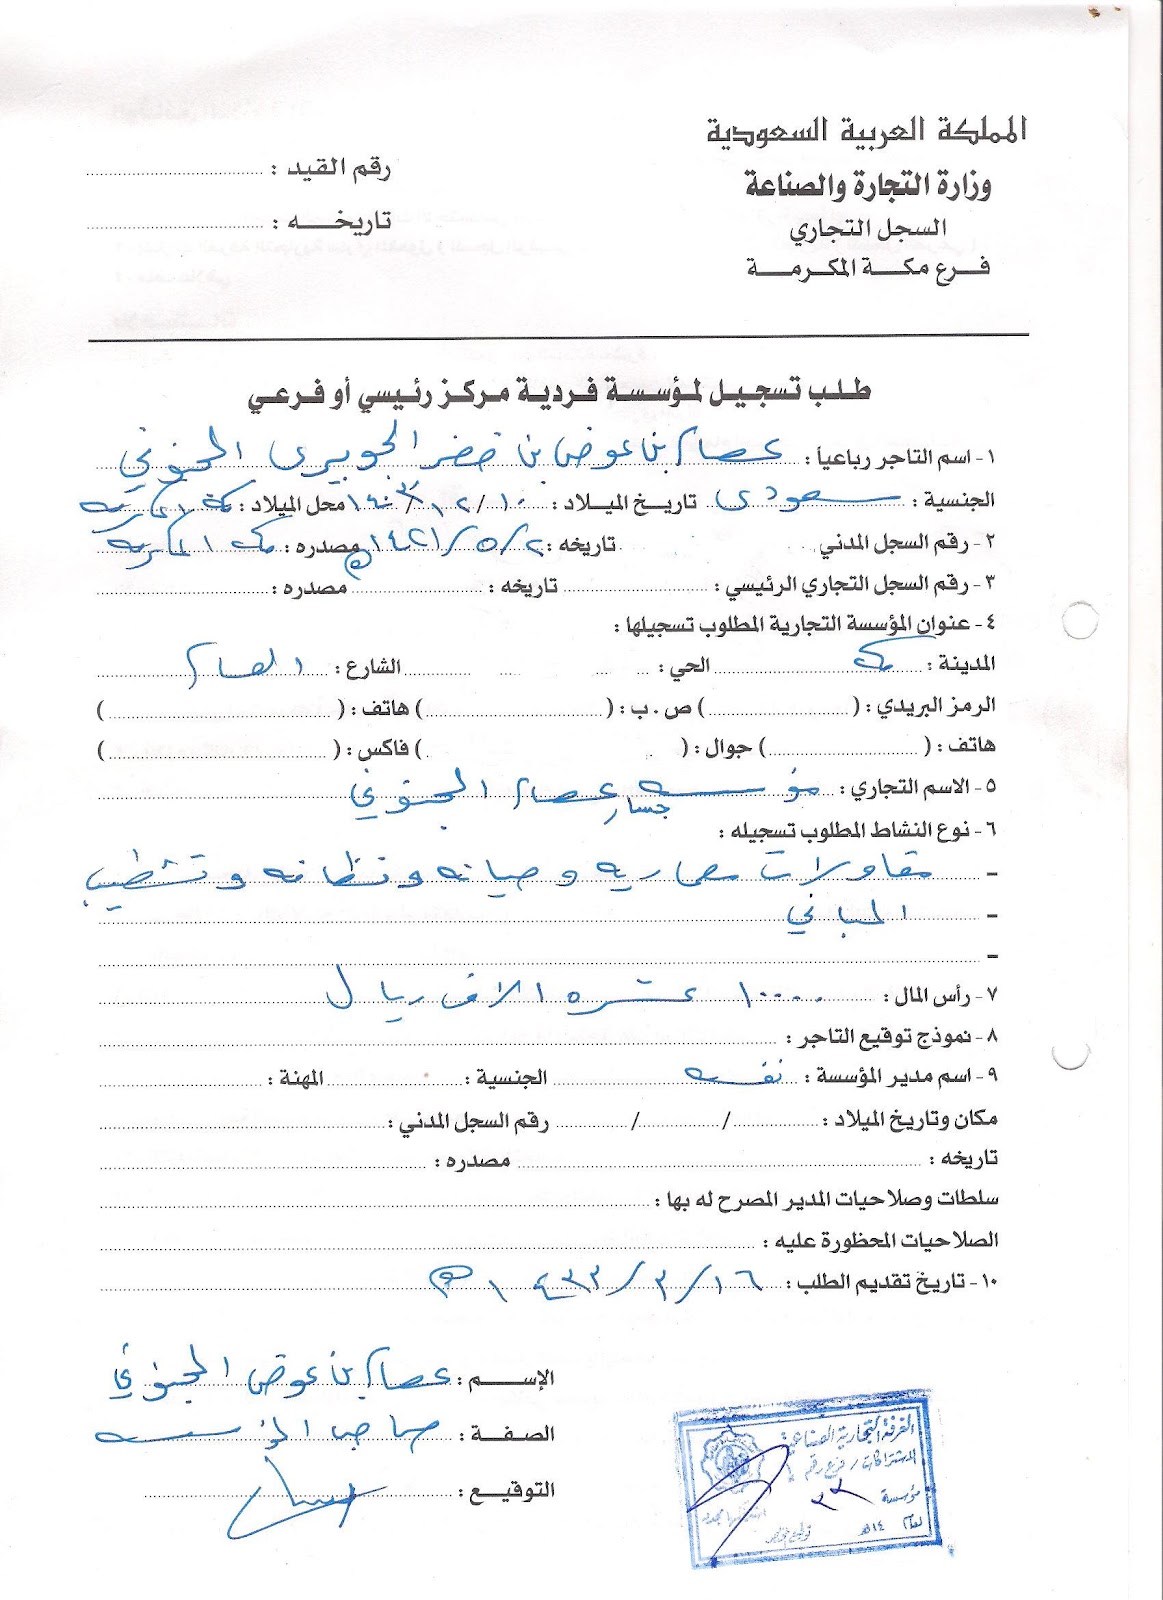 المملكة العربية السعودية
وزارة التجارة والصناعة
السجل التجاري
فرع مكة المكرمة
رقم القيد :
تاريخه :
طلب تسجيل لمؤسسة فردية مركز رئيسي أو فرعي
١- اسم التاجر رباعياً : عصام بن عوض بن خضر الجويبرى
الجنسية : سعودى تاريخ الميلاد : ١٠/١٢/١٤٠٣ محل الميلاد : مكة المكرمه
٢- رقم السجل المدني تاريخه : ٢/٥/١٤٢١ه مصدره : مكه المكرمه
٣- رقم السجل التجاري الرئيسي : تاريخه : مصدره :
٤- عنوان المؤسسة التجارية المطلوب تسجيلها :
المدينة : مكه الحي : الشارع : العام
الرمز البريدي : ( ) ص . ب : ( ) هاتف : ( )
هاتف : ( ) جوال : ( ) فاكس : ( )
٥- الاسم التجاري : مؤسسه جسار عصام
٦- نوع النشاط المطلوب تسجيله :
- مقاولات معماريه وصيانه ونظافه وتشطيب
- المباني
-
٧- رأس المال : ١٠٠٠٠ عشره الاف ريال
٨- نموذج توقيع التاجر :
٩- اسم مدير المؤسسة : نفسه الجنسية : المهنة :
مكان وتاريخ الميلاد : / / رقم السجل المدني :
تاريخه : مصدره :
سلطات وصلاحيات المدير المصرح له بها :
الصلاحيات المحظورة عليه :
١٠- تاريخ تقديم الطلب : ١٦/٣/١٤٣٣ه
الإســـم : عصام بن عوض
الصفـة : صاحب المؤسسه
التوقيـع :
الغرفة التجارية الصناعية
الاشتراكات / فرع رقم
مؤسسة
لعام ١٤هـ